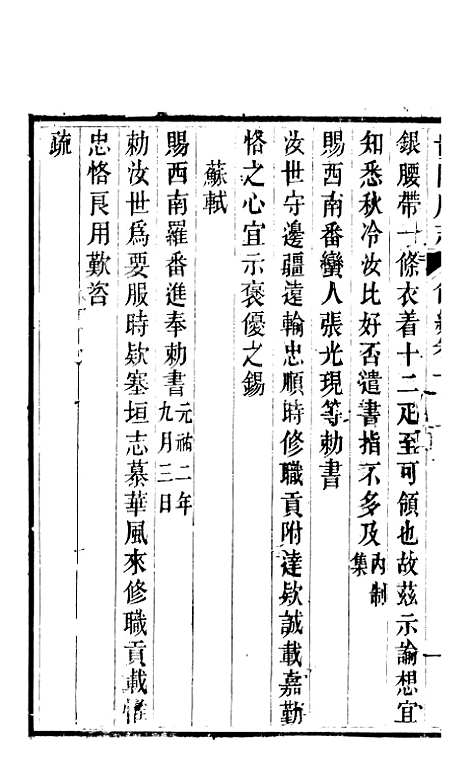 銀腰帶一條衣着十二疋至可領也故茲示諭想宜
知悉秋冷汝比好否遣書指不多及內制集
賜西南番蠻人張光現等勅書
汝世守邊疆遠輸忠順時修職貢附達欵誠載嘉勤
恪之心宜示褒優之錫
蘇軾
賜西南羅番進奉勅書元祐二年九月三日
勅汝世爲要服時欵塞垣志慕華風來修職貢載惟
忠恪良用歎咨
疏